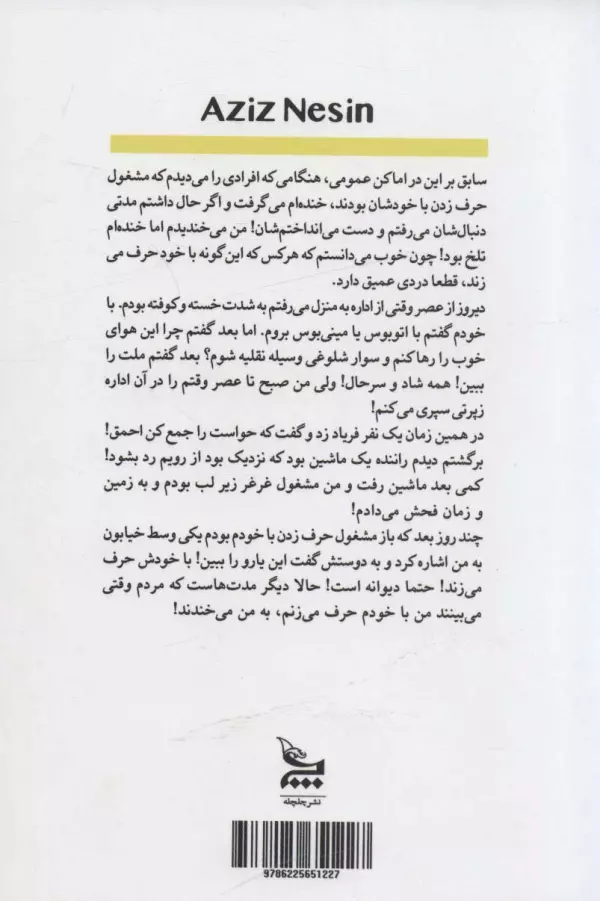 Aziz Nesin
سابق بر این در اماکن عمومی، هنگامی‌که افرادی را می‌دیدم که مشغول
حرف زدن با خودشان بودند، خنده‌ام می‌گرفت و اگر حال داشتم مدتی
دنبال‌شان می‌رفتم و دست می‌انداختم‌شان! من می‌خندیدم اما خنده‌ام
تلخ بود! چون خوب می‌دانستم که هرکس که این‌گونه با خود حرف می
زند، قطعا دردی عمیق دارد.
دیروز از عصر وقتی از اداره به منزل می‌رفتم به شدت خسته و کوفته بودم. با
خودم گفتم با اتوبوس یا مینی‌بوس بروم. اما بعد گفتم چرا این هوای
خوب را رها کنم و سوار شلوغی وسیله نقلیه شوم؟ بعد گفتم ملت را
ببین! همه شاد و سرحال! ولی من صبح تا عصر وقتم را در آن اداره
زپرتی سپری می‌کنم!
در همین زمان یک نفر فریاد زد و گفت که حواست را جمع کن احمق!
برگشتم دیدم راننده یک ماشین بود که نزدیک بود از رویم رد بشود!
کمی بعد ماشین رفت و من مشغول غرغر زیر لب بودم و به زمین
و زمان فحش می‌دادم!
چند روز بعد که باز مشغول حرف زدن با خودم بودم یکی وسط خیابون
به من اشاره کرد و به دوستش گفت این یارو را ببین! با خودش حرف
می‌زند! حتما دیوانه است! حالا دیگر مدت‌هاست که مردم وقتی
می‌بینند من با خودم حرف می‌زنم، به من می‌خندند!
نشر چلچله
9786225651227